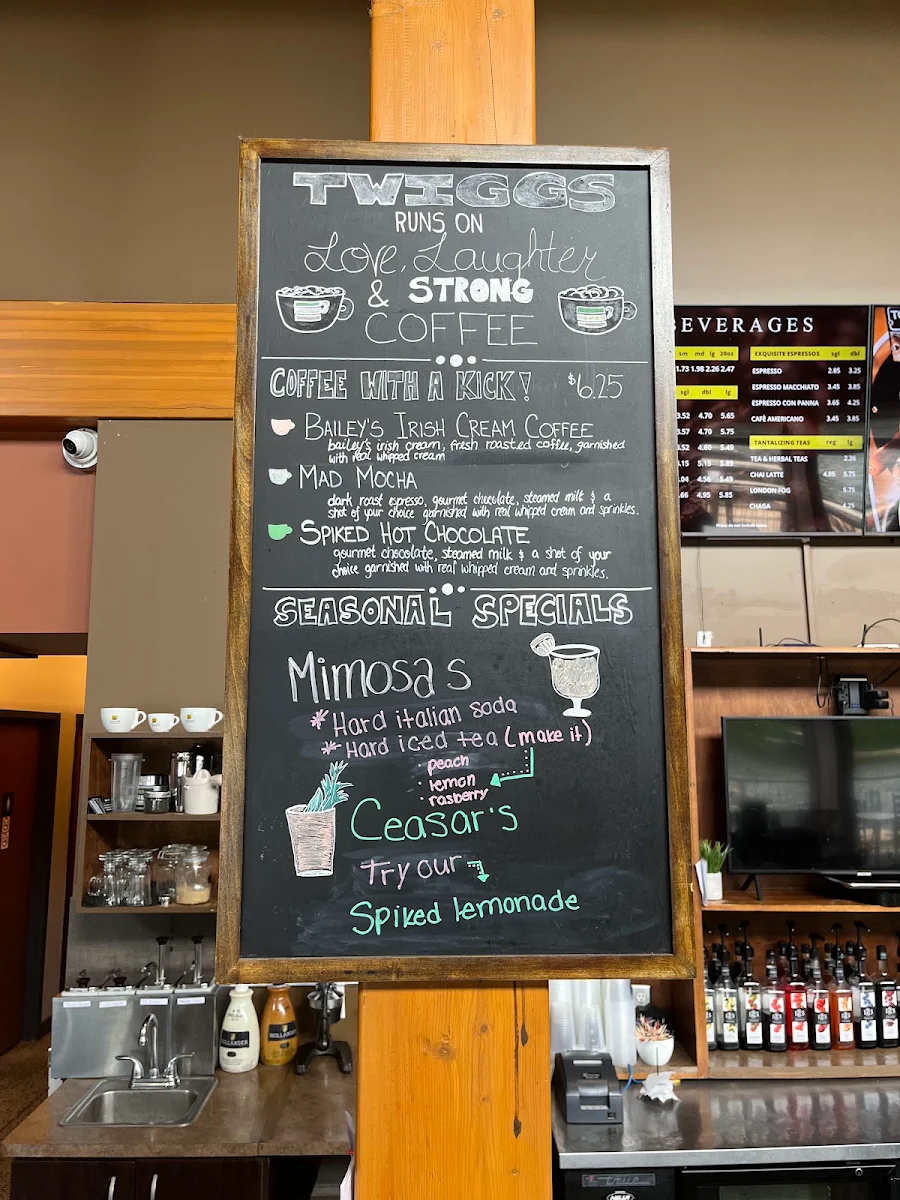 TWIGGS
RUNS ON
Love, Laughter
& STRONG
COFFEE
COFFEE WITH A KICK! $6.25
BAILEY'S IRISH CREAM COFFEE
bailey's irish cream, fresh roasted coffee, garnished
with real whipped cream
MAD MOCHA
dark roast espresso, gourmet chocolate, steamed milk & a
shot of your choice garnished with real whipped cream and sprinkles.
SPIKED HOT CHOCOLATE
gourmet chocolate, steamed milk & a shot of your
choice garnished with real whipped cream and sprinkles.
SEASONAL SPECIALS
Mimosas
* Hard italian soda
* Hard iced tea (make it)
peach
lemon
rasberry
Ceasar's
Try our
Spiked lemonade
EVERAGES
sm md lg 20oz
1.73 1.98 2.26 2.47
sgl dbl lg
3.52 4.70 5.65
3.57 4.70 5.75
4.60 5.49
.15 5.15 5.89
4.56 5.49
4.95 5.85
EXQUISITE ESPRESSOS sgl dbl
ESPRESSO 2.85 3.25
ESPRESSO MACCHIATO 3.45 3.85
ESPRESSO CON PANNA 3.65 4.25
CAFÉ AMERICANO 3.45 3.85
TANTALIZING TEAS reg lg
TEA & HERBAL TEAS 2.26
CHAI LATTE 4.85 5.75
LONDON FOG 5.75
CHAGA 4.25
HOLLANDER